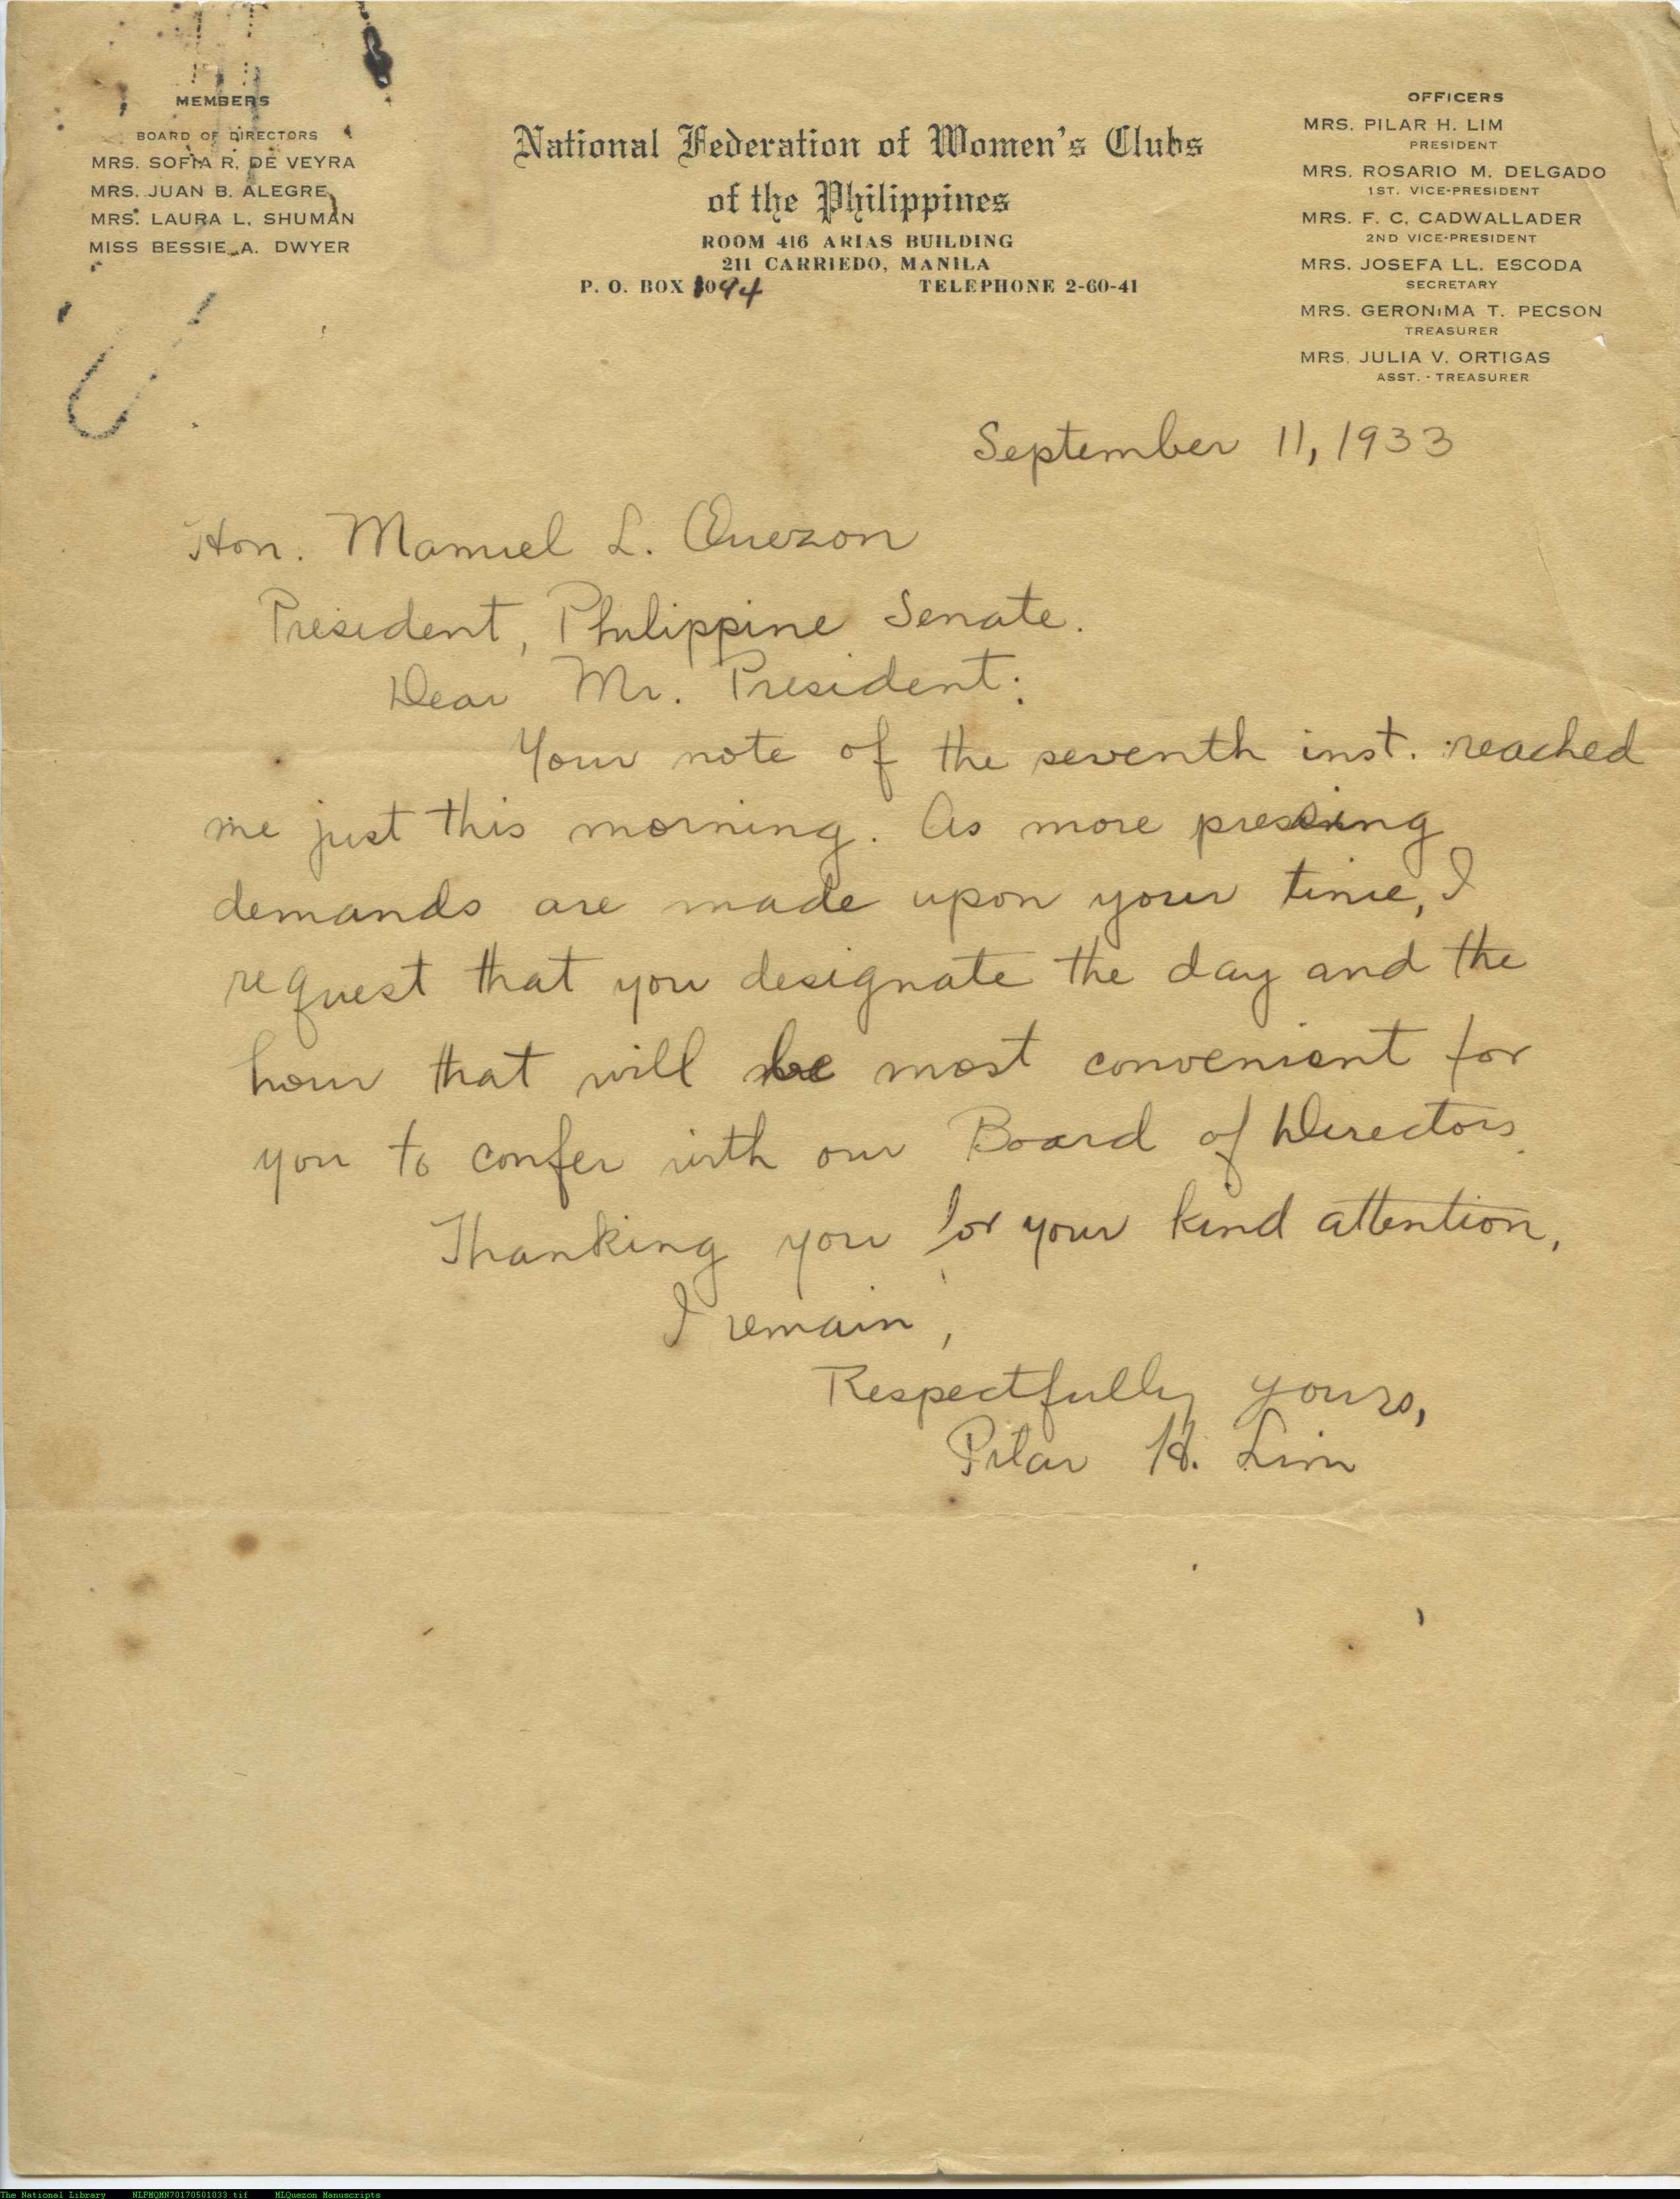 MEMBERS
BOARD OF DIRECTORS
MRS. SOFIA R. DE VEYRA
MRS. JUAN B. ALEGRE
MRS. LAURA L. SHUMAN
MISS BESSIE A. DWYER
National Federation of Women's Clubs
of the Philippines
ROOM 416 ARIAS BUILDING
211 CARRIEDO, MANILA
P. O. BOX 1094 TELEPHONE 2-60-41
OFFICERS
MRS. PILAR H. LIM
PRESIDENT
MRS. ROSARIO M. DELGADO
1ST. VICE-PRESIDENT
MRS. F. C. CADWALLADER
2ND VICE-PRESIDENT
MRS. JOSEFA LL. ESCODA
SECRETARY
MRS. GERONIMA T. PECSON
TREASURER
MRS. JULIA V. ORTIGAS
ASST. - TREASURER
September 11, 1933
Hon. Manuel L. Quezon
President, Philippine Senate.
Dear Mr. President:
Your note of the seventh inst. reached
me just this morning. As more pressing
demands are made upon your time, I
request that you designate the day and the
hour that will be most convenient for
you to confer with our Board of Directors.
Thanking you for your kind attention,
I remain,
Respectfully yours,
Pilar H. Lim
The National Library NLPMQMN70170501033.tif MLQuezon Manuscripts